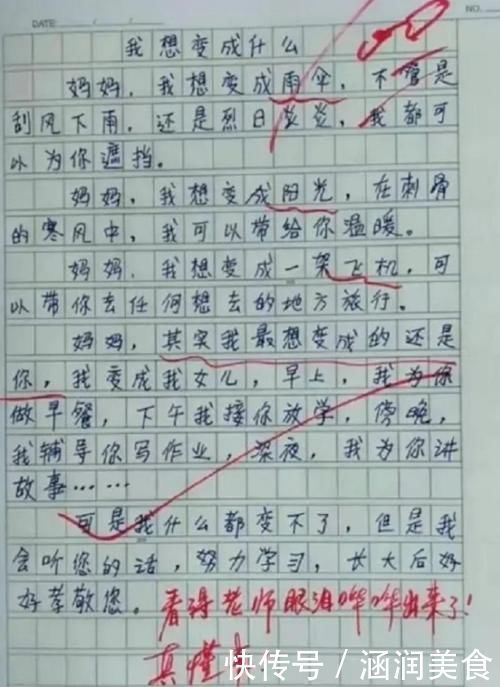 DATE:
NO.
我想变成什么
妈妈，我想变成雨伞，不管是
刮风下雨。还是烈日炎炎，我都可
以为你遮挡。
妈妈，我想变成阳光，在刺骨
的寒风中，我可以带给你温暖。
妈妈，我想变成一架飞机，可
以带你去任何想去的地方旅行。
妈妈，其实我最想变成的还是
你，我变成我女儿，早上，我为你
做早餐，下午我接你放学，傍晚，
我辅导你写作业，深夜，我为你讲
故事……
可是我什么都变不了，但是我
会听您的话，努力学习，长大后好
好孝敬您。看得老师眼泪哗哗出来了！
真懂
快传号／涵润美食